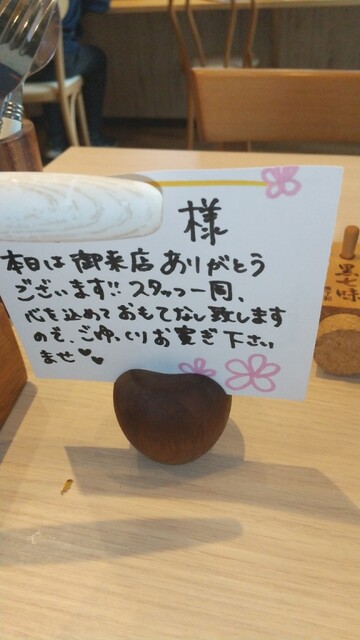 様
本日は御来店ありがとう
ございます!! スタッフ一同、
心を込めておもてなし致します
ので、ごゆっくりお寛ぎ下さい
ませ♥♥
黒七味